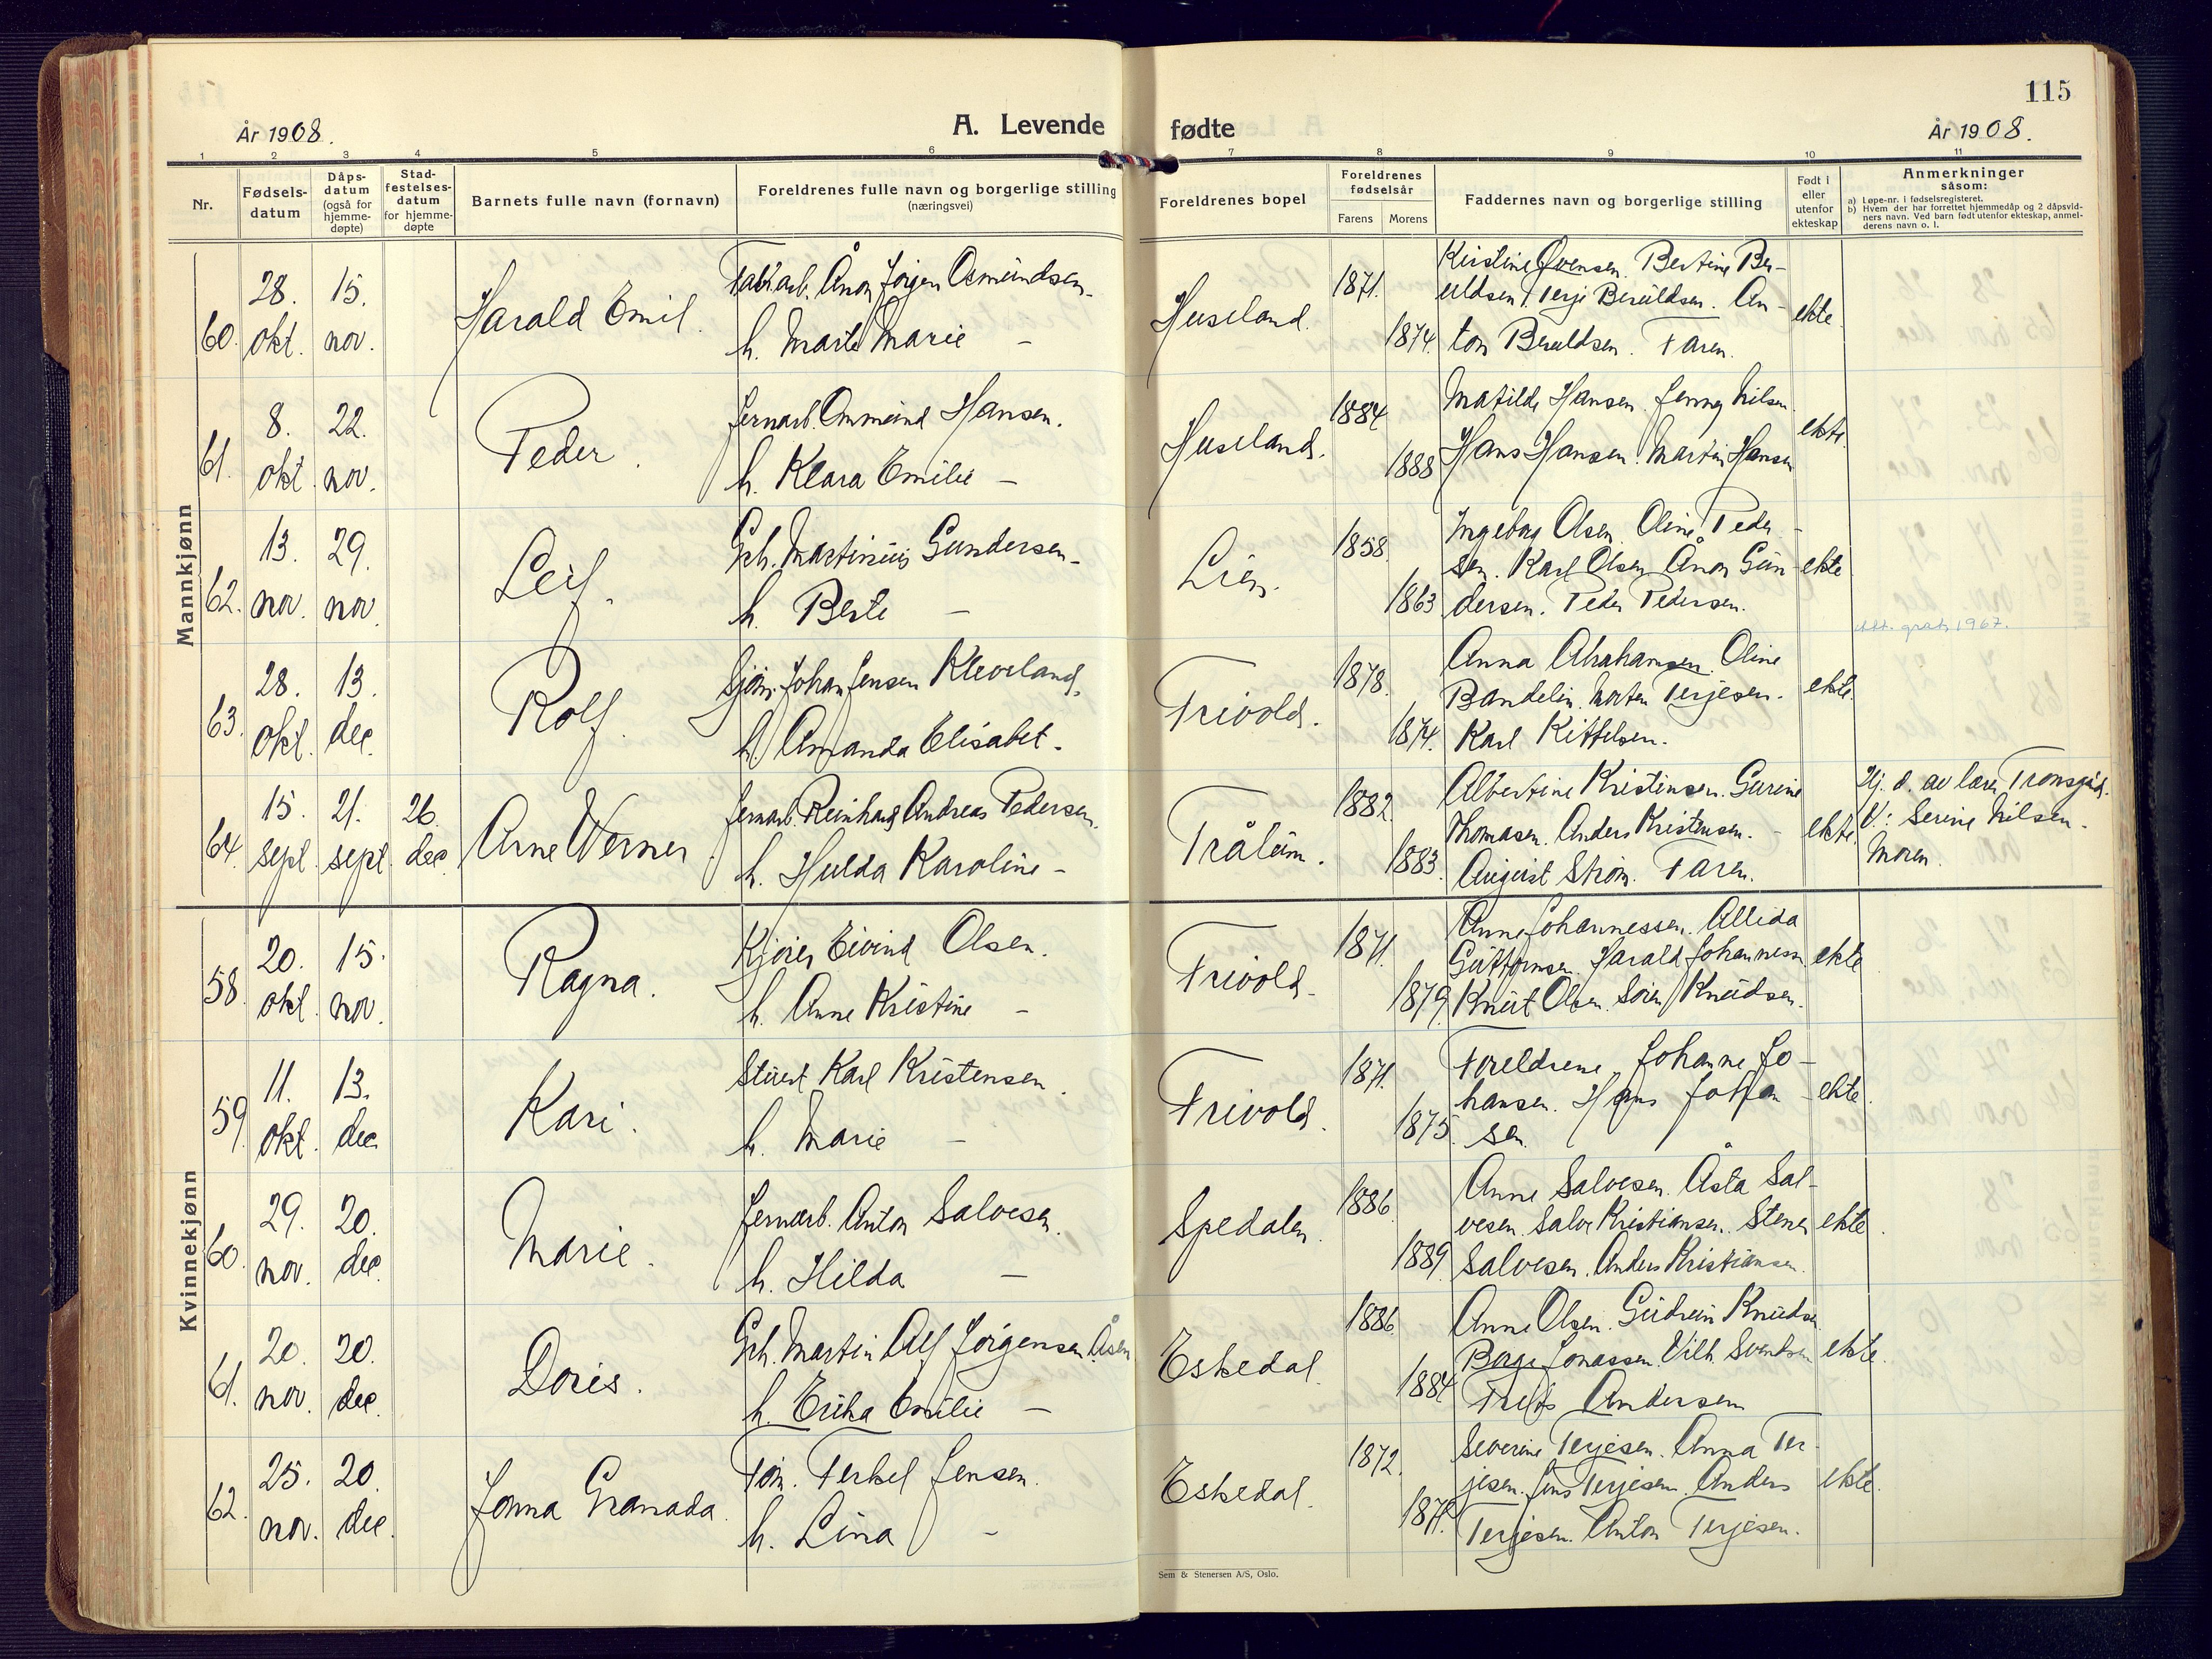 115
År 1908.
A. Levende fødte
År 1908.
1 2 3 4 5 6 7 8 9 10 11
Nr.
Fødsels-
datum
Dåps-
datum
(også for
hjemme-
døpte)
Stad-
festelses-
datum
for hjemme-
døpte
Barnets fulle navn (fornavn)
Foreldrenes fulle navn og borgerlige stilling
(næringsvei)
Foreldrenes bopel
Foreldrenes
fødselsår
Farens Morens
Faddernes navn og borgerlige stilling
Født i
eller
utenfor
ekteskap
Anmerkninger
såsom:
a) Løpe-nr. i fødselsregisteret.
b) Hvem der har forrettet hjemmedåp og 2 dåpsvid-
ners navn. Ved barn født utenfor ekteskap, anmel-
derens navn o. l.
Mannkjønn
60. 28. okt. 15. nov.
Harald Emil.
Fabr.arb. Ånon Jörgen Osmundsen.
h. Marte Marie —
Huseland.
1871.
1874.
Kirstine Evensen. Bertine Ber-
uldsen. Terje Beruldsen. An-
ton Beruldsen. Faren.
ekte.
61. 8. okt. 22. nov.
Peder.
Jernarb. Ommund Hansen.
h. Klara Emilie —
Huseland.
1884
1888
Matilde Hansen. Jenny Nilsen.
Hans Hansen. Martin Hansen
ekte.
62. 13. nov. 29. nov.
Leif.
Gbr. Martinius Gundersen.
h. Berte —
Lien.
1858
1863
Ingeborg Olsen. Oline Peder-
sen. Karl Olsen. Ånon Gun-
dersen. Peder Pedersen.
ekte
attt. grats 1967.
63. 28. okt. 13. dec.
Rolf.
Sjöm. Johan Jensen Kleveland,
h. Amanda Elisabet.
Frivold.
1878.
1874.
Anna Abrahamsen. Oline
Bandelin. Morten Terjesen.
Karl Kittelsen.
ekte.
64. 15. sept. 21. sept. 26. dec.
Arne Werner.
Jernarb. Reinhard Andreas Pedersen.
h. Hulda Karoline —
Trålum.
1882.
1883.
Albertine Kristensen. Gurine
Thomasen. Anders Kristensen.
August Ström. Faren.
ekte.
Hj. d. av lærer Tronsgård.
V: Serine Nilsen.
Moren.
Kvinnekjønn
58. 20. okt. 15. nov.
Ragna.
Kjörer Eivind Olsen.
h. Anne Kristine —
Frivold.
1871.
1879.
Anne Johannessen. Allida
Guttormsen. Harald Johannessen
Knut Olsen. Sören Knudsen.
ekte
59. 11. okt. 13. dec.
Kari.
Stuert Karl Kristensen.
h. Marie —
Frivold.
1871.
1875.
Foreldrene. Johanne Jo-
hansen. Hans Johan-
sen.
ekte.
60. 29. nov. 20. dec.
Marie.
Jernarb. Anton Salvesen.
h. Hilda —
Spedalen.
1886.
1889.
Anne Salvesen. Åsta Sal-
vesen. Salve Kristiansen. Stener
Salvesen. Anders Kristiansen.
ekte.
61. 20. nov. 20. dec.
Doris.
Gbr. Martin Alf Jörgensen Åsen
h. Erika Emilie —
Eskedal.
1886.
1884.
Anne Olsen. Gudrun Knudsen
Borge Jonassen. Vilh. Svendsen
Frits Andersen
ekte.
62. 25. nov. 20. dec.
Jonna Granada.
Töm. Terkel Jensen.
h. Lina —
Eskedal.
1872.
Severine Terjesen. Anna Ter-
jesen. Jens Terjesen. Anders
Terjesen. Anton Terjesen.
ekte.
Sem & Stenersen A/S, Oslo.